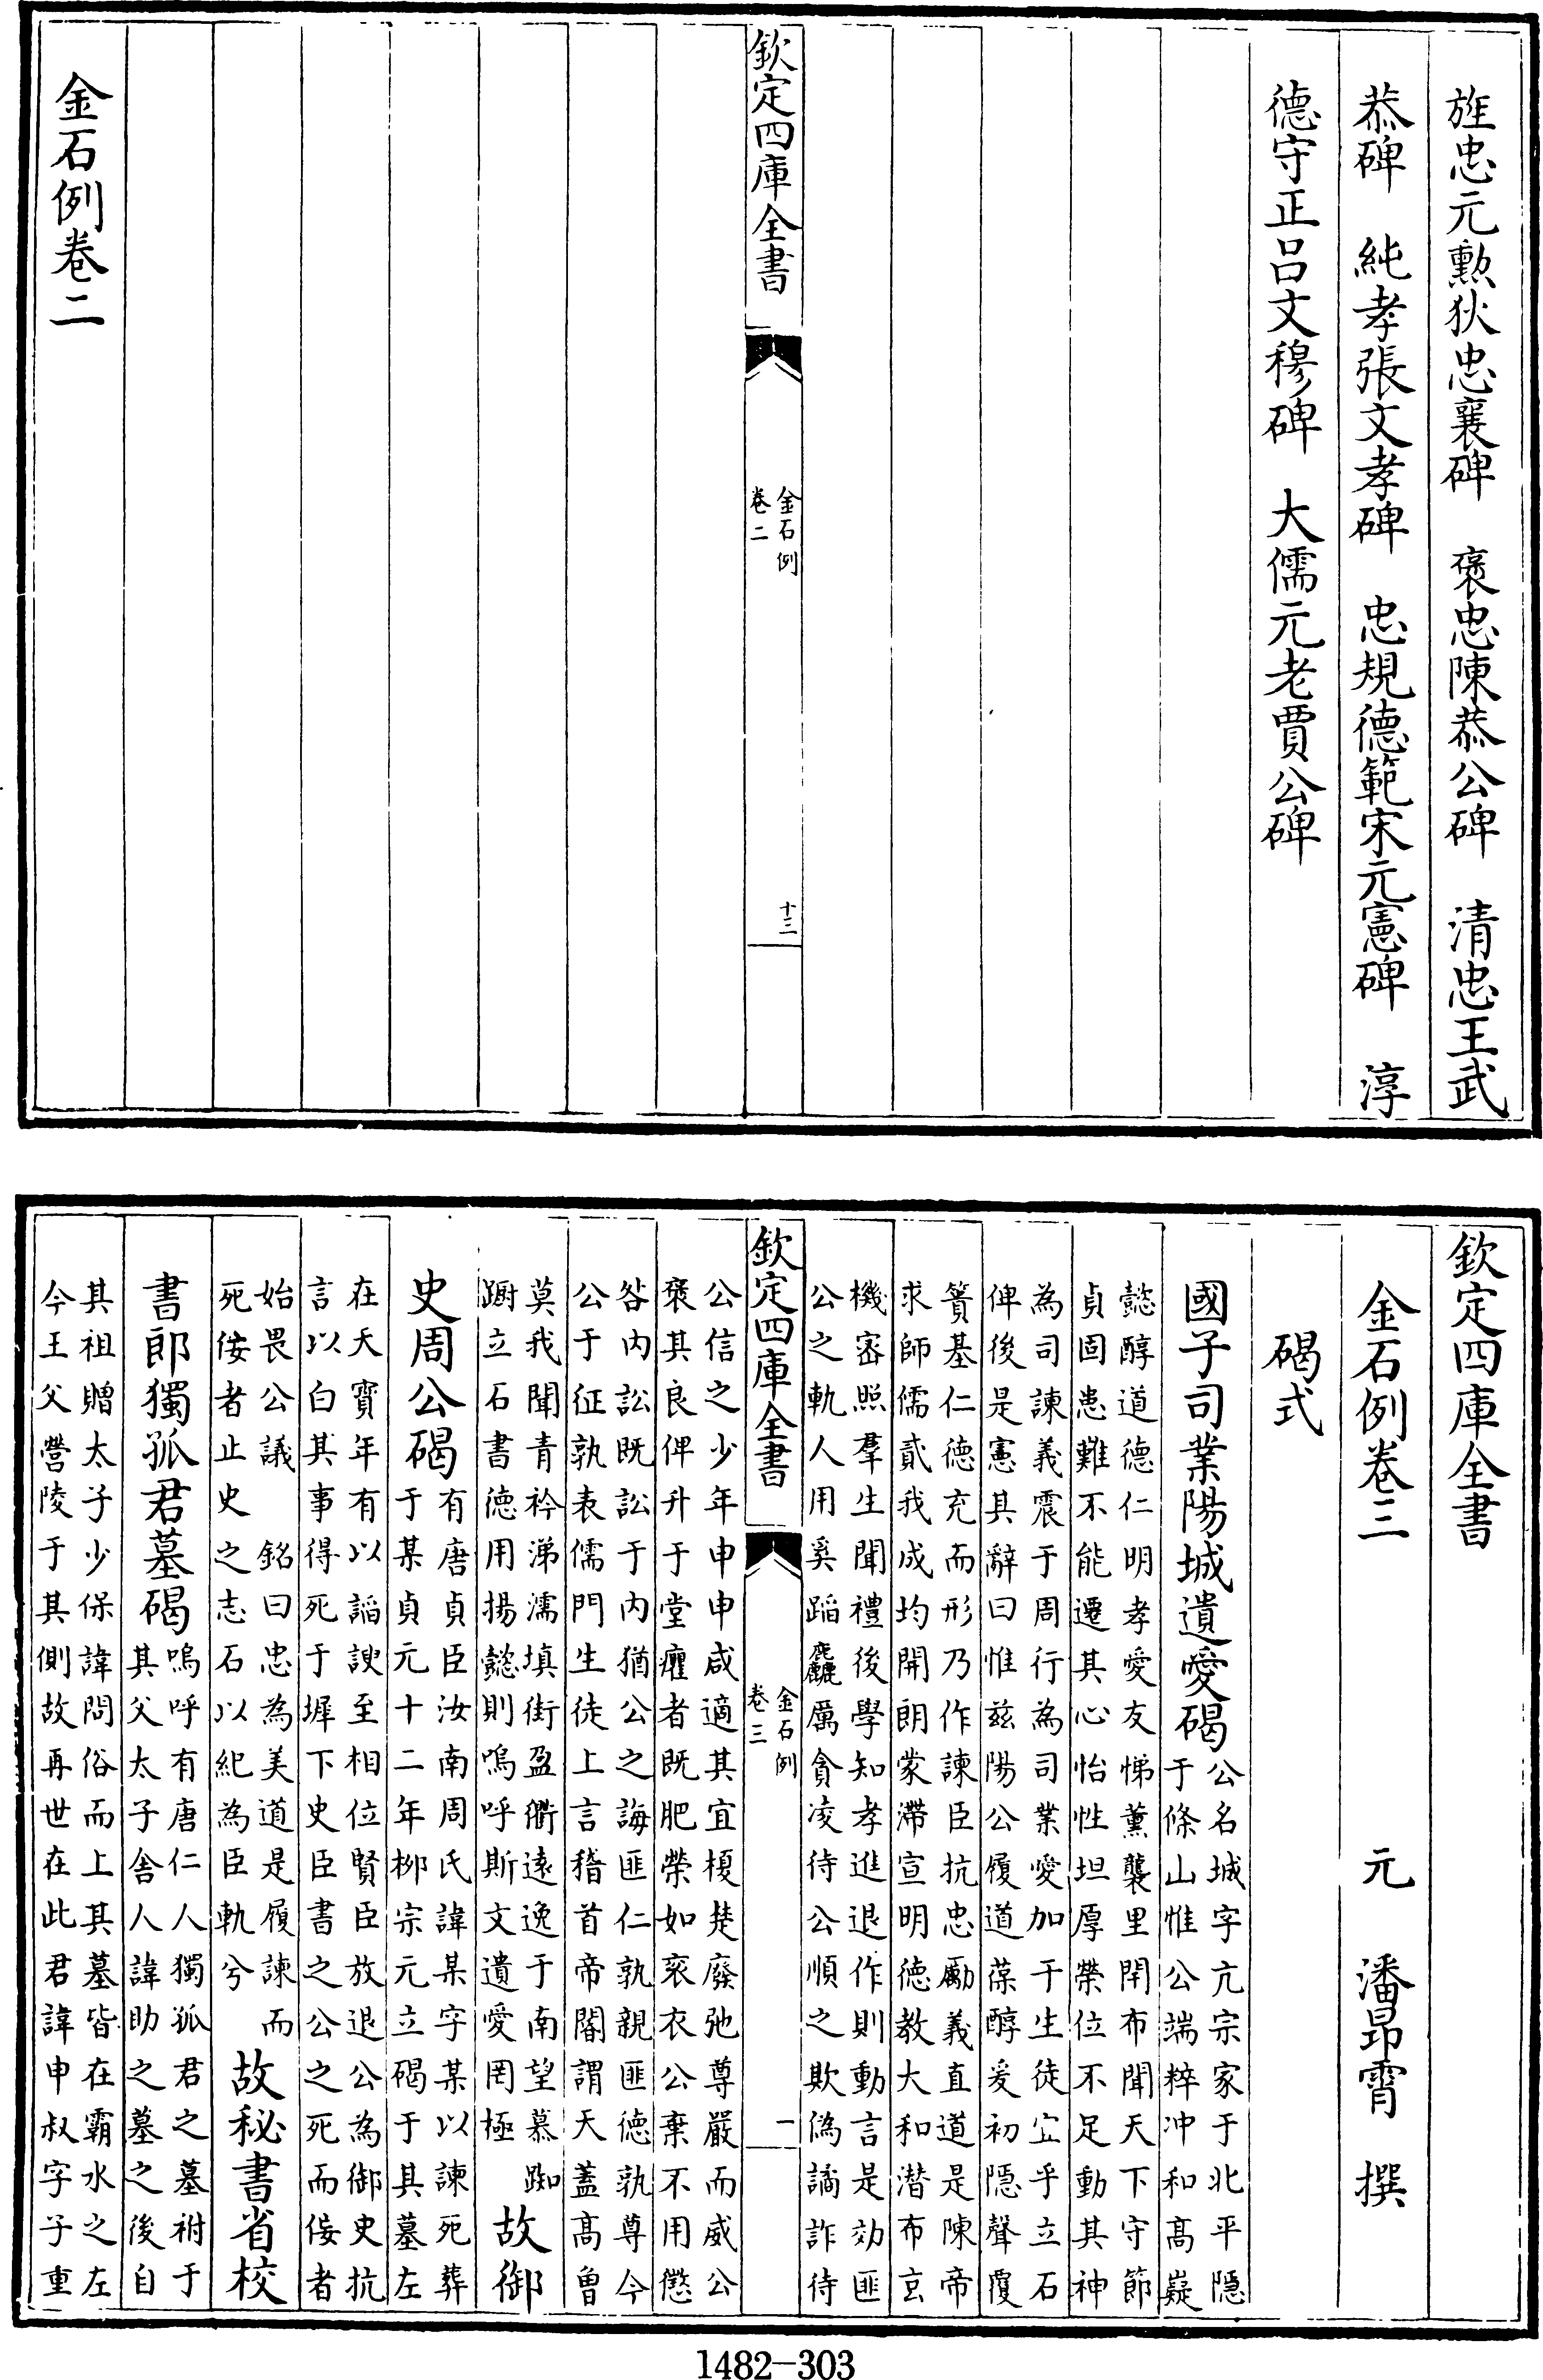 旌忠元勲狄忠襄碑　褒忠陳恭公碑　清忠王武
恭碑　純孝張文孝碑　忠規德範宋元憲碑　淳
德守正呂文穆碑　大儒元老賈公碑
欽定四庫全書
金石例
卷二
十三
金石例卷二
欽定四庫全書
金石例卷三
元　潘昻霄　撰
碣式
國子司業陽城遺愛碣
公名城字亢宗家于北平隱
于條山惟公端粹冲和髙嶷
懿醇道德仁明孝愛友悌薫襲里閈布聞天下守節
貞固患難不能遷其心怡性坦厚榮位不足動其神
為司諫義震于周行為司業愛加于生徒宜乎立石
俾後是憲其辭曰惟兹陽公履道葆醇爰初隱聲覆
簣基仁德充而形乃作諫臣抗忠勵義直道是陳帝
求師儒貳我成均開朗蒙滯宣明徳教大和潛布玄
機宻照羣生聞禮後學知孝進退作則動言是効匪
公之軌人用奚蹈麤厲貪凌待公順之欺偽譎詐待
欽定四庫全書
金石例
卷三
一
公信之少年申申咸適其宜榎楚廢弛尊嚴而威公
褒其良俾升于堂癯者既肥榮如衮衣公棄不用懲
咎内訟既訟于内猶公之誨匪仁孰親匪德孰尊今
公于征孰表儒門生徒上言稽首帝閽謂天蓋髙曾
莫我聞青衿涕濡填街盈衢遠逸于南望慕踟
蹰立石書德用揚懿則嗚呼斯文遺愛罔極
故御
史周公碣
有唐貞臣汝南周氏諱某字某以諫死葬
于某貞元十二年栁宗元立碣于其墓左
在天寳年有以謟諛至相位賢臣放退公為御史抗
言以白其事得死于墀下史臣書之公之死而佞者
始畏公議　銘曰忠為美道是履諫而
死佞者止史之志石以紀為臣軌兮
故秘書省校
書郎獨孤君墓碣
嗚呼有唐仁人獨孤君之墓祔于
其父太子舍人諱助之墓之後自
其祖贈太子少保諱問俗而上其墓皆在霸水之左
今王父營陵于其側故再世在此君諱申叔字子重
1482—303